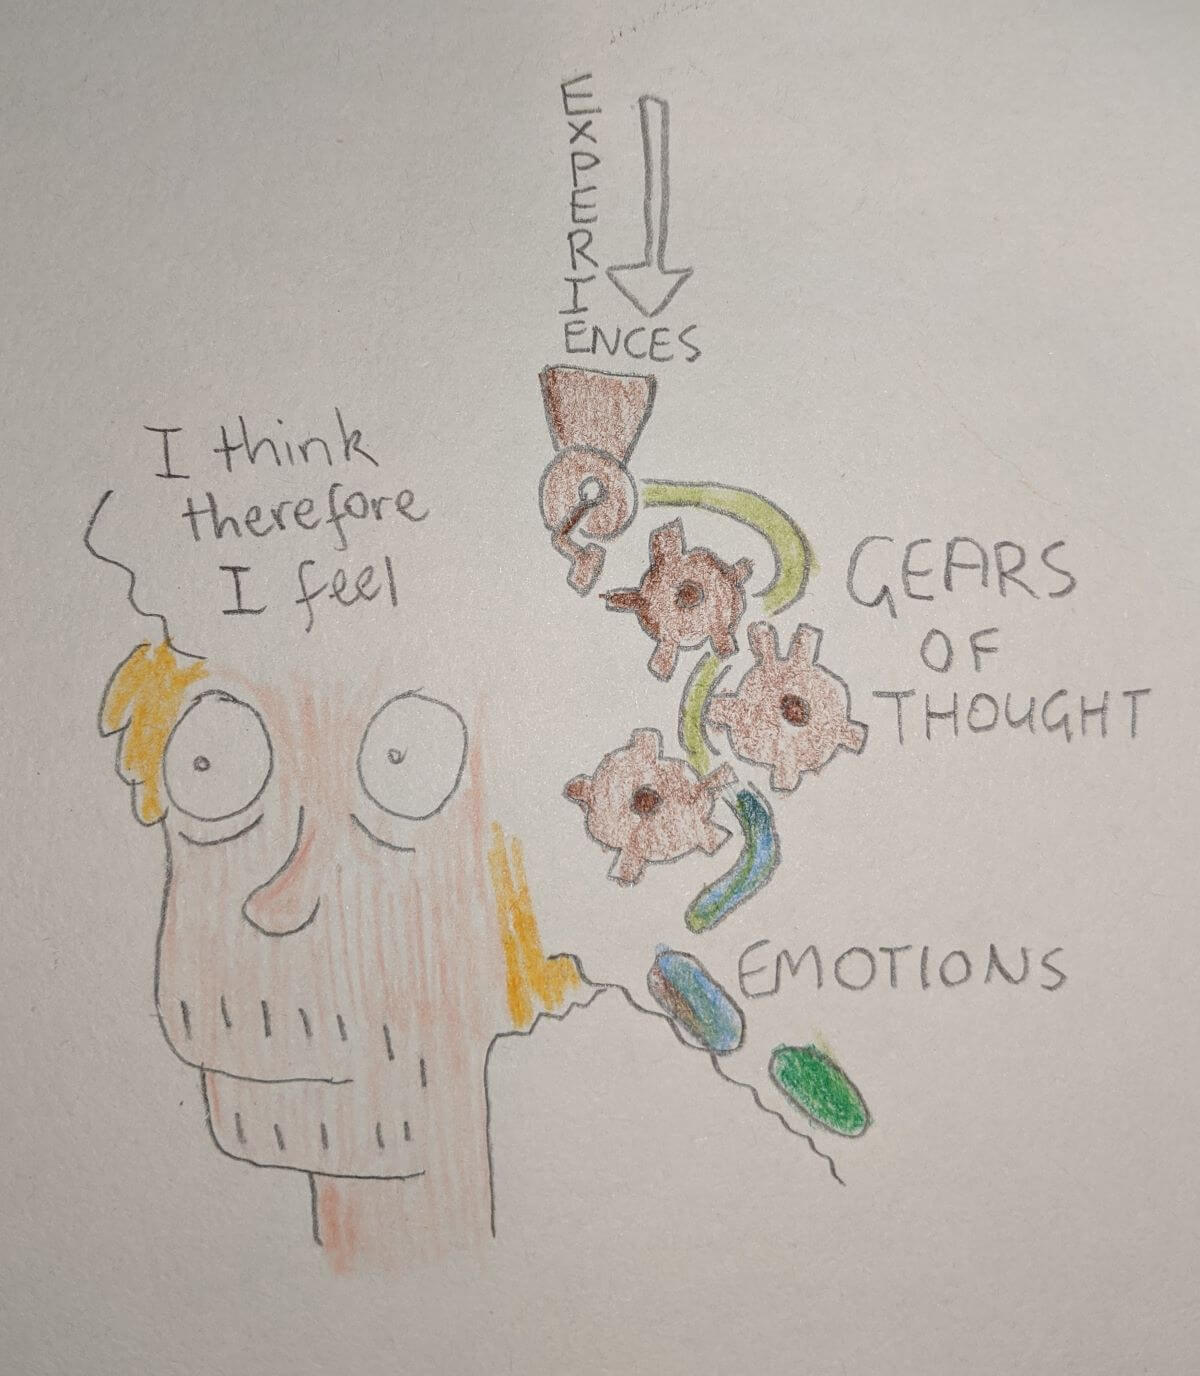 EXPERI
ENCES
I think
therefore
I feel
GEARS
OF
THOUGHT
EMOTIONS